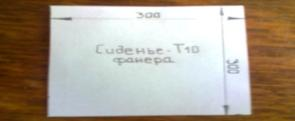 300
Сиденье-Т10
фанера
300